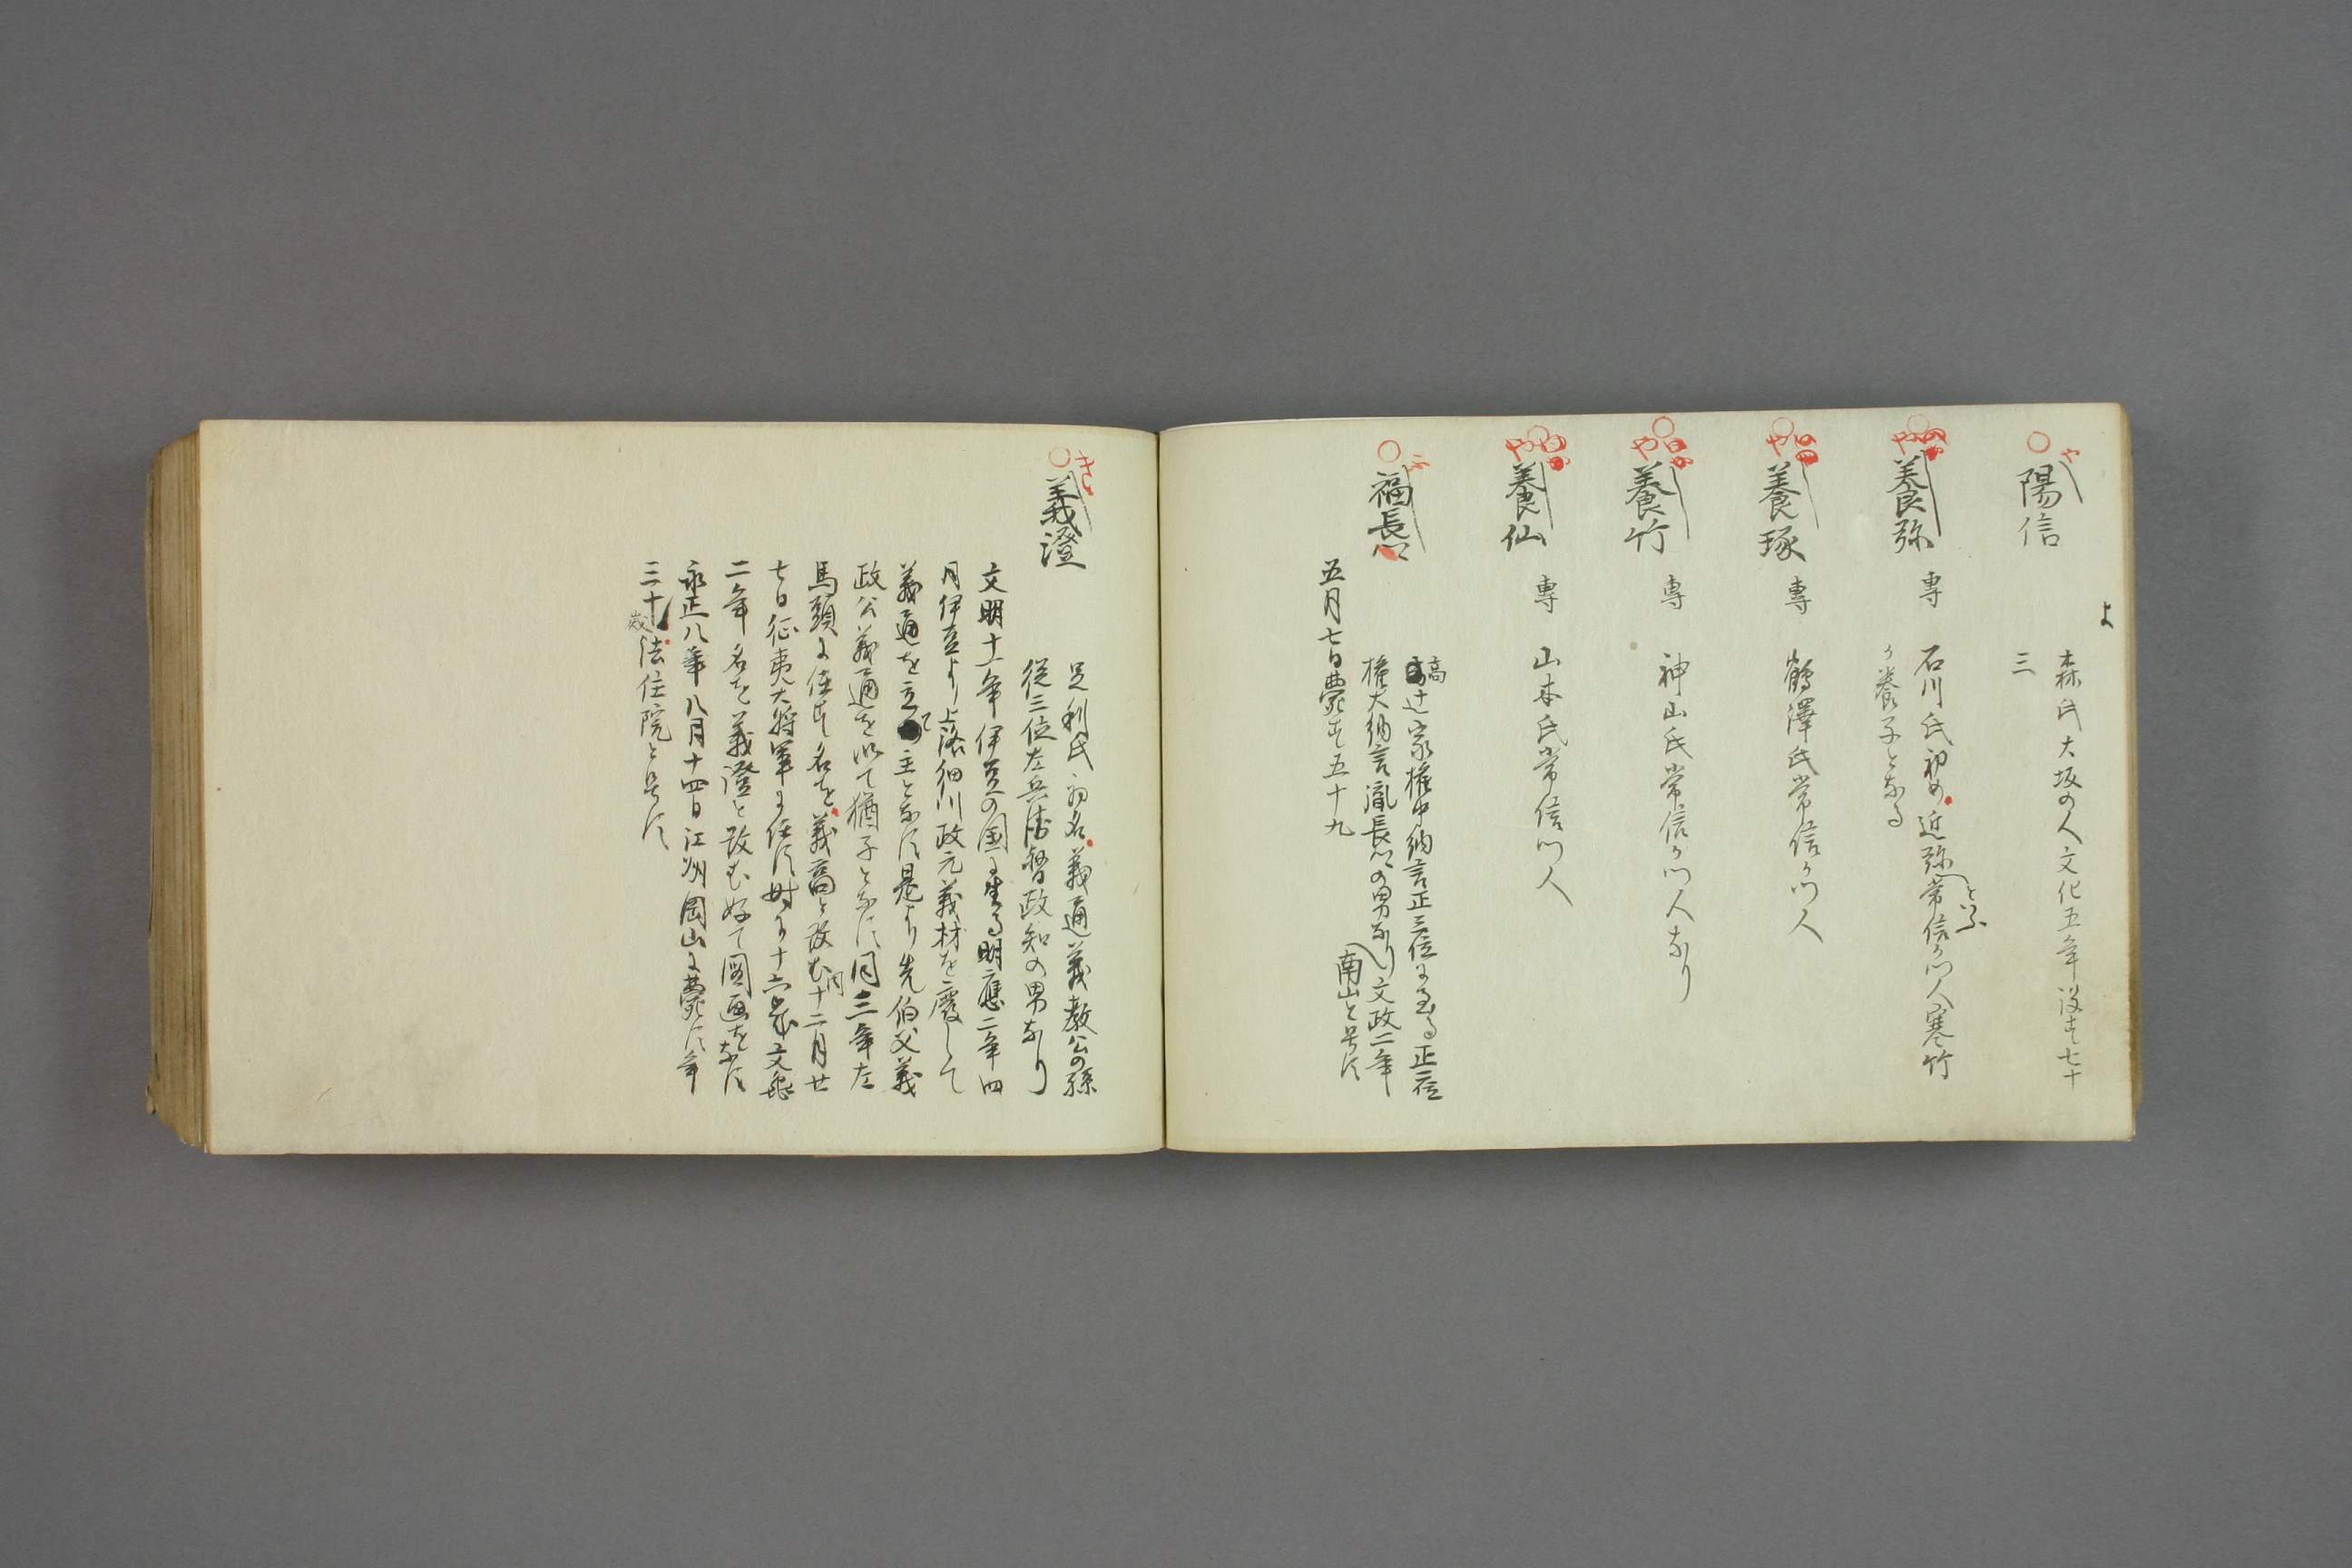 よ
や
陽信
森氏大坂の人文化五年没す七十
三
や
養弥 専
石川氏初め近弥といふ常信か門人寒竹
か養子となる
や
養琢 専 鶴澤氏常信か門人
や
養竹 専 神山氏常信か門人なり
や
養仙 専 山本氏常信門人
福長
高辻家権中納言正三位に至る正二位
権大納言胤長の男なり南山と号す文政二年
五月七日薨す五十九
き
義澄
足利氏初名義通義教公の孫
従三位左兵衛督政知の男なり
文明十二年伊豆の国に生る明應二年四
月伊豆より上洛細川政元義材を廃して
義通を立て主となす是より先伯父義
政公義通を以て猶子となす同三年左
馬頭に任す名を義高と改む同十二月廿
七日征夷大将軍に任す時に十六歳文亀
二年名を義澄と改む好て図画をなす
永正八年八月十四日江州岡山に薨す年
三十歳法住院と号す